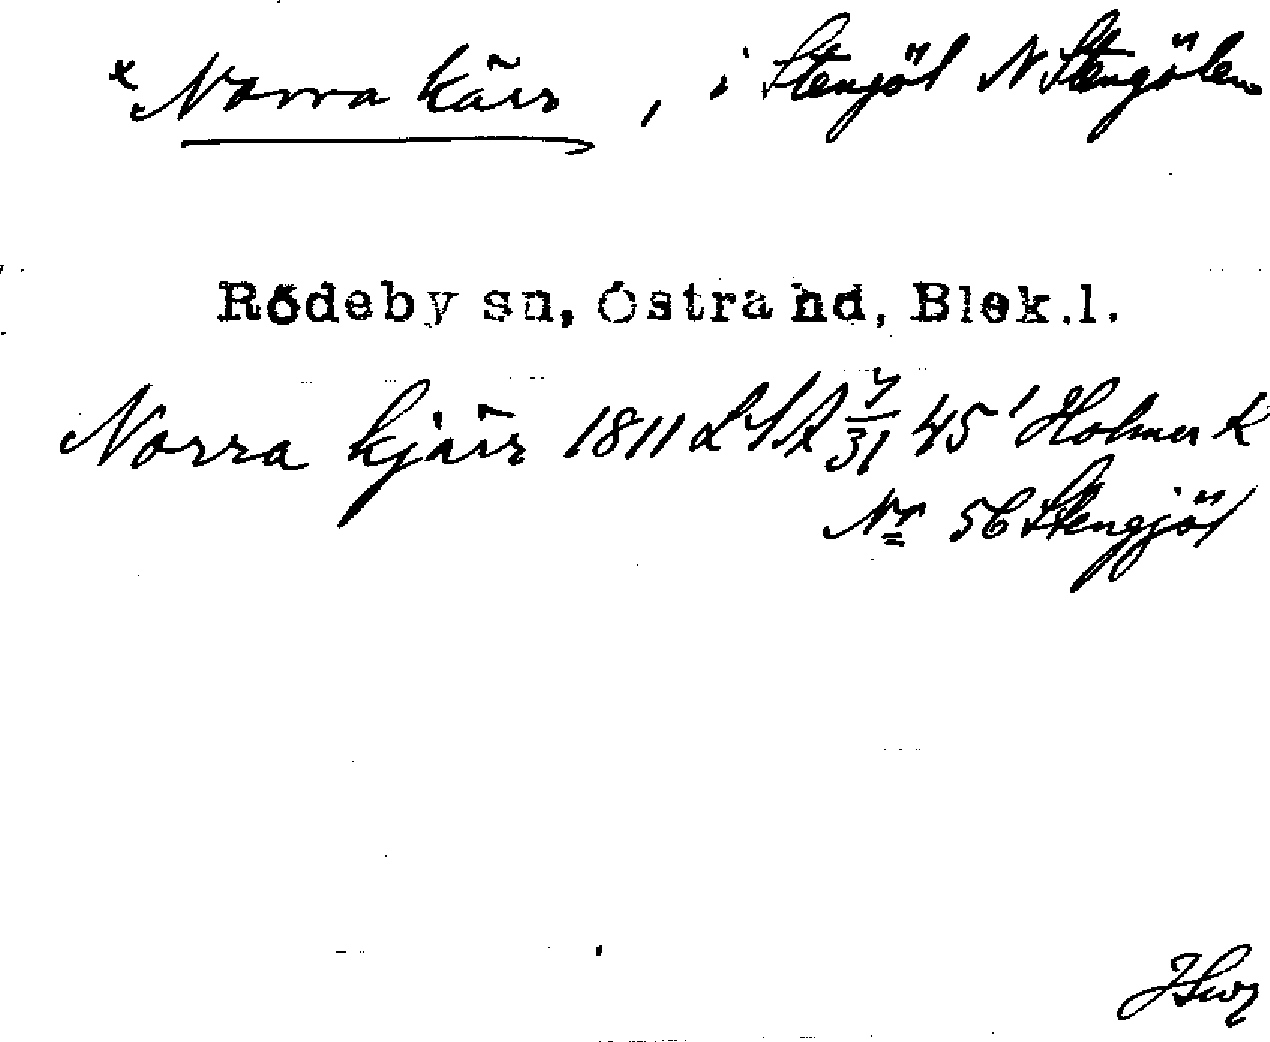 x Norra kärr, i Stengöl N Stengölen
Rödeby sn, Östra hd, Blek.l.
Norra kjärr 1811 LSA 31 45' Holmen K
Nr 56 Stengjöl